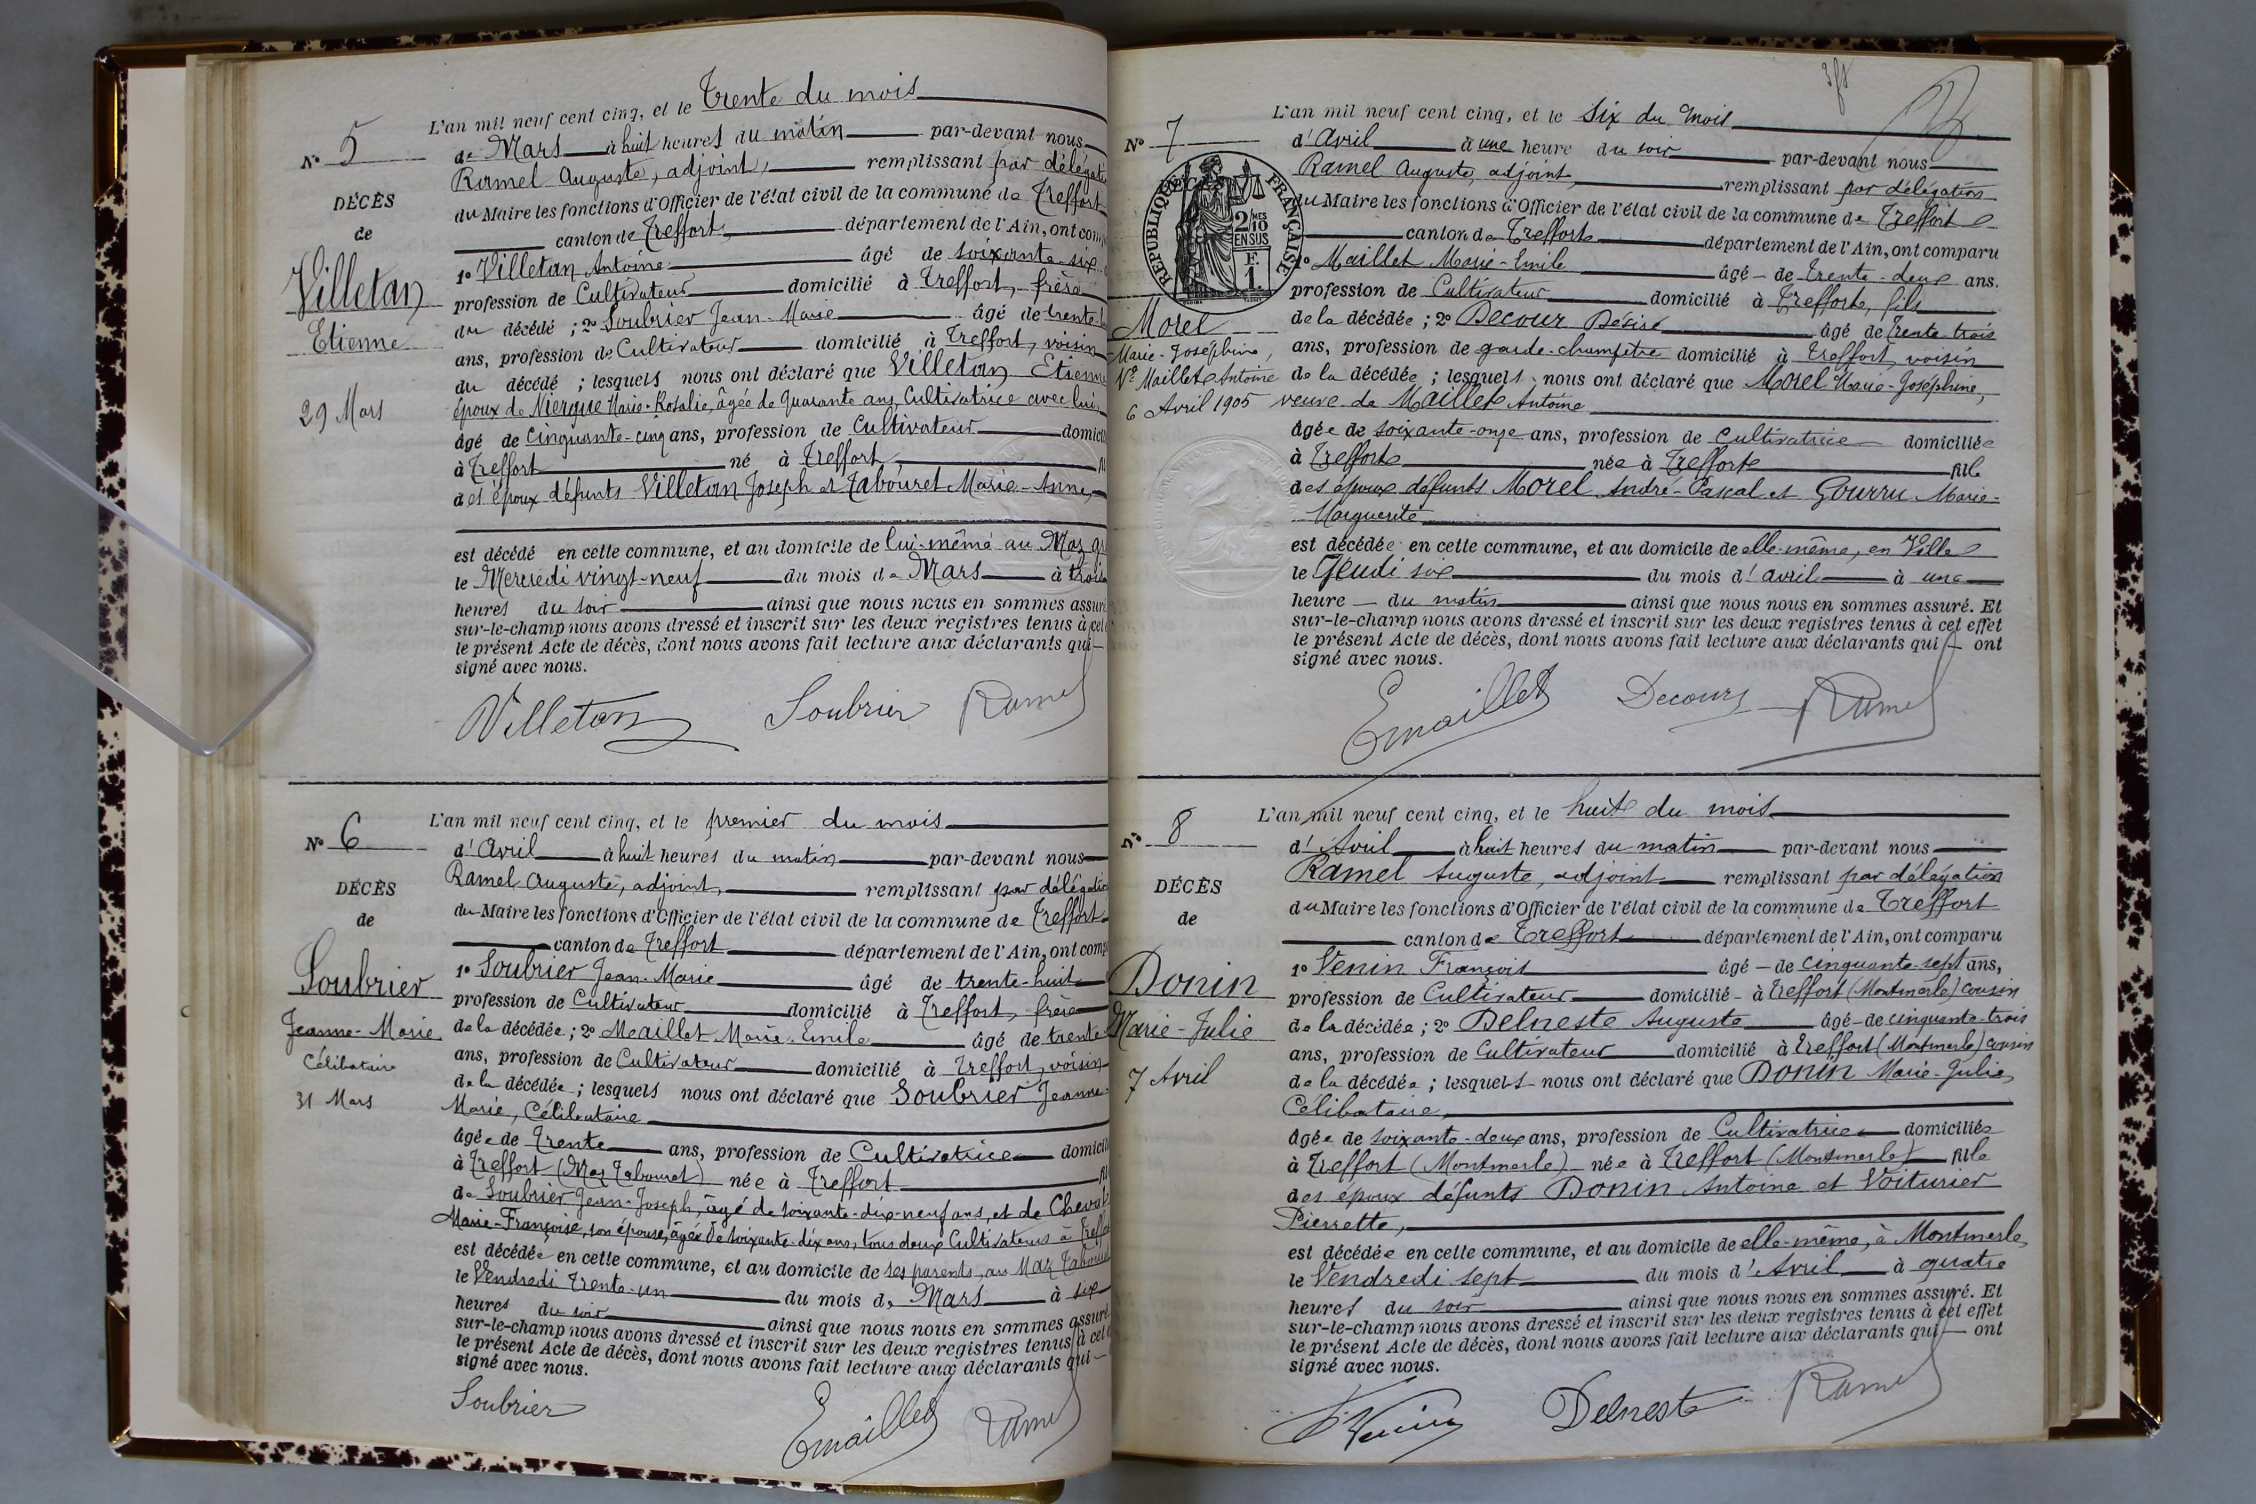 L'an mil neuf cent cinq, et le Trente du mois
N° 5
de Mars à huit heures du matin par-devant nous
Ramel Auguste, adjoint, remplissant par délégation
DÉCÈS
du Maire les fonctions d'Officier de l'état civil de la commune de Treffort
de
canton de Treffort, département de l'Ain, ont comp
Villetan
1° Villetan Antoine âgé de soixante-six
profession de Cultivateur domicilié à Treffort, frère
Etienne
du décédé ; 2° Soubrier Jean-Marie âgé de trente-
ans, profession de Cultivateur domicilié à Treffort, voisin
du décédé ; lesquels nous ont déclaré que Villetan Etienne
29 Mars
époux de Niergue Marie-Rosalie, âgée de quarante ans, Cultivatrice avec lui,
âgé de cinquante-cinq ans, profession de Cultivateur domici
à Treffort né à Treffort,
des époux défunts Villetan Joseph et Tabouret Marie-Anne,
est décédé en cette commune, et au domicile de lui-même au Maz
le Mercredi vingt-neuf du mois de Mars à trois
heures du soir ainsi que nous nous en sommes assuré
sur-le-champ nous avons dressé et inscrit sur les deux registres tenus à cet
le présent Acte de décès, dont nous avons fait lecture aux déclarants qui
signé avec nous.
Villetan Soubrier Ramel
L'an mil neuf cent cinq, et le premier du mois
N° 6
d'Avril à huit heures du matin par-devant nous
Ramel Auguste, adjoint, remplissant par délégation
DÉCÈS
du Maire les fonctions d'Officier de l'état civil de la commune de Treffort
de
canton de Treffort département de l'Ain, ont comp
Soubrier
1° Soubrier Jean-Marie âgé de trente-huit
profession de Cultivateur domicilié à Treffort, frère
Jeanne-Marie
de la décédée ; 2° Maillet Marie-Emile âgé de trente
Célibataire
ans, profession de Cultivateur domicilié à Treffort, voisin
de la décédée ; lesquels nous ont déclaré que Soubrier Jeanne-
31 Mars
Marie, Célibataire
âgée de Trente ans, profession de Cultivatrice domicili
à Treffort (Maz Tabouret) née à Treffort
de Soubrier Jean-Joseph, âgé de soixante-dix-neuf ans, et de Chevat
Marie-Françoise, son épouse, âgée de soixante-dix ans, tous deux Cultivateurs à Treffort
est décédée en cette commune, et au domicile de ses parents, au Maz Tabouret
le Vendredi trente-un du mois de Mars à six
heures du soir ainsi que nous nous en sommes assuré
sur-le-champ nous avons dressé et inscrit sur les deux registres tenus à cet
le présent Acte de décès, dont nous avons fait lecture aux déclarants qui
signé avec nous.
Soubrier Emaillet Ramel
L'an mil neuf cent cinq, et le Six du mois
N° 7
d'Avril à une heure du soir par-devant nous
Ramel Auguste, adjoint, remplissant par délégation
RÉPUBLIQUE FRANÇAISE
2/10 MES
EN SUS
F.
1.
du Maire les fonctions d'Officier de l'état civil de la commune de Treffort
canton de Treffort département de l'Ain, ont comparu
1° Maillet Marie-Emile âgé de trente-deux ans.
profession de Cultivateur domicilié à Treffort, fils
Morel
de la décédée ; 2° Decour Désiré âgé de trente-trois
Marie-Joséphine,
ans, profession de garde-champêtre domicilié à Treffort, voisin
Ve Maillet Antoine
de la décédée ; lesquels nous ont déclaré que Morel Marie-Joséphine,
6 Avril 1905
veuve de Maillet Antoine
âgée de soixante-onze ans, profession de Cultivatrice domiciliée
à Treffort née à Treffort fille
des époux défunts Morel André-Pascal et Gourru Marie-
Marguerite
est décédée en cette commune, et au domicile de elle-même, en Ville
le Jeudi six du mois d'avril à une
heure du matin ainsi que nous nous en sommes assuré. Et
sur-le-champ nous avons dressé et inscrit sur les deux registres tenus à cet effet
le présent Acte de décès, dont nous avons fait lecture aux déclarants qui ont
signé avec nous.
Emaillet Decour Ramel
L'an mil neuf cent cinq, et le huit du mois
N° 8
d'Avril à huit heures du matin par-devant nous
Ramel Auguste, adjoint remplissant par délégation
DÉCÈS
du Maire les fonctions d'Officier de l'état civil de la commune de Treffort
de
canton de Treffort département de l'Ain, ont comparu
Donin
1° Venin François âgé de cinquante-sept ans,
profession de Cultivateur domicilié à Treffort (Montmerle) cousin
Marie-Julie
de la décédée ; 2° Delneste Auguste âgé de cinquante-trois
ans, profession de Cultivateur domicilié à Treffort (Montmerle) cousin
7 Avril
de la décédée ; lesquels nous ont déclaré que Donin Marie-Julie,
Célibataire,
âgée de soixante-deux ans, profession de Cultivatrice domiciliée
à Treffort (Montmerle) née à Treffort (Montmerle) fille
des époux défunts Donin Antoine et Voiturier
Pierrette,
est décédée en cette commune, et au domicile de elle-même, à Montmerle,
le Vendredi sept du mois d'Avril à quatre
heures du soir ainsi que nous nous en sommes assuré. Et
sur-le-champ nous avons dressé et inscrit sur les deux registres tenus à cet effet
le présent Acte de décès, dont nous avons fait lecture aux déclarants qui ont
signé avec nous.
Venin Delneste Ramel